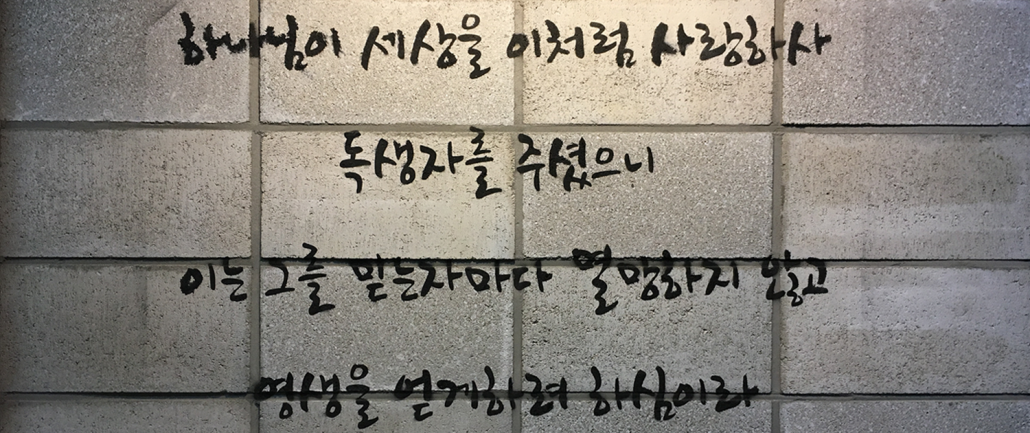 하나님이 세상을 이처럼 사랑하사
독생자를 주셨으니
이는 그를 믿는자마다 멸망하지 않고
영생을 얻게하려 하심이라